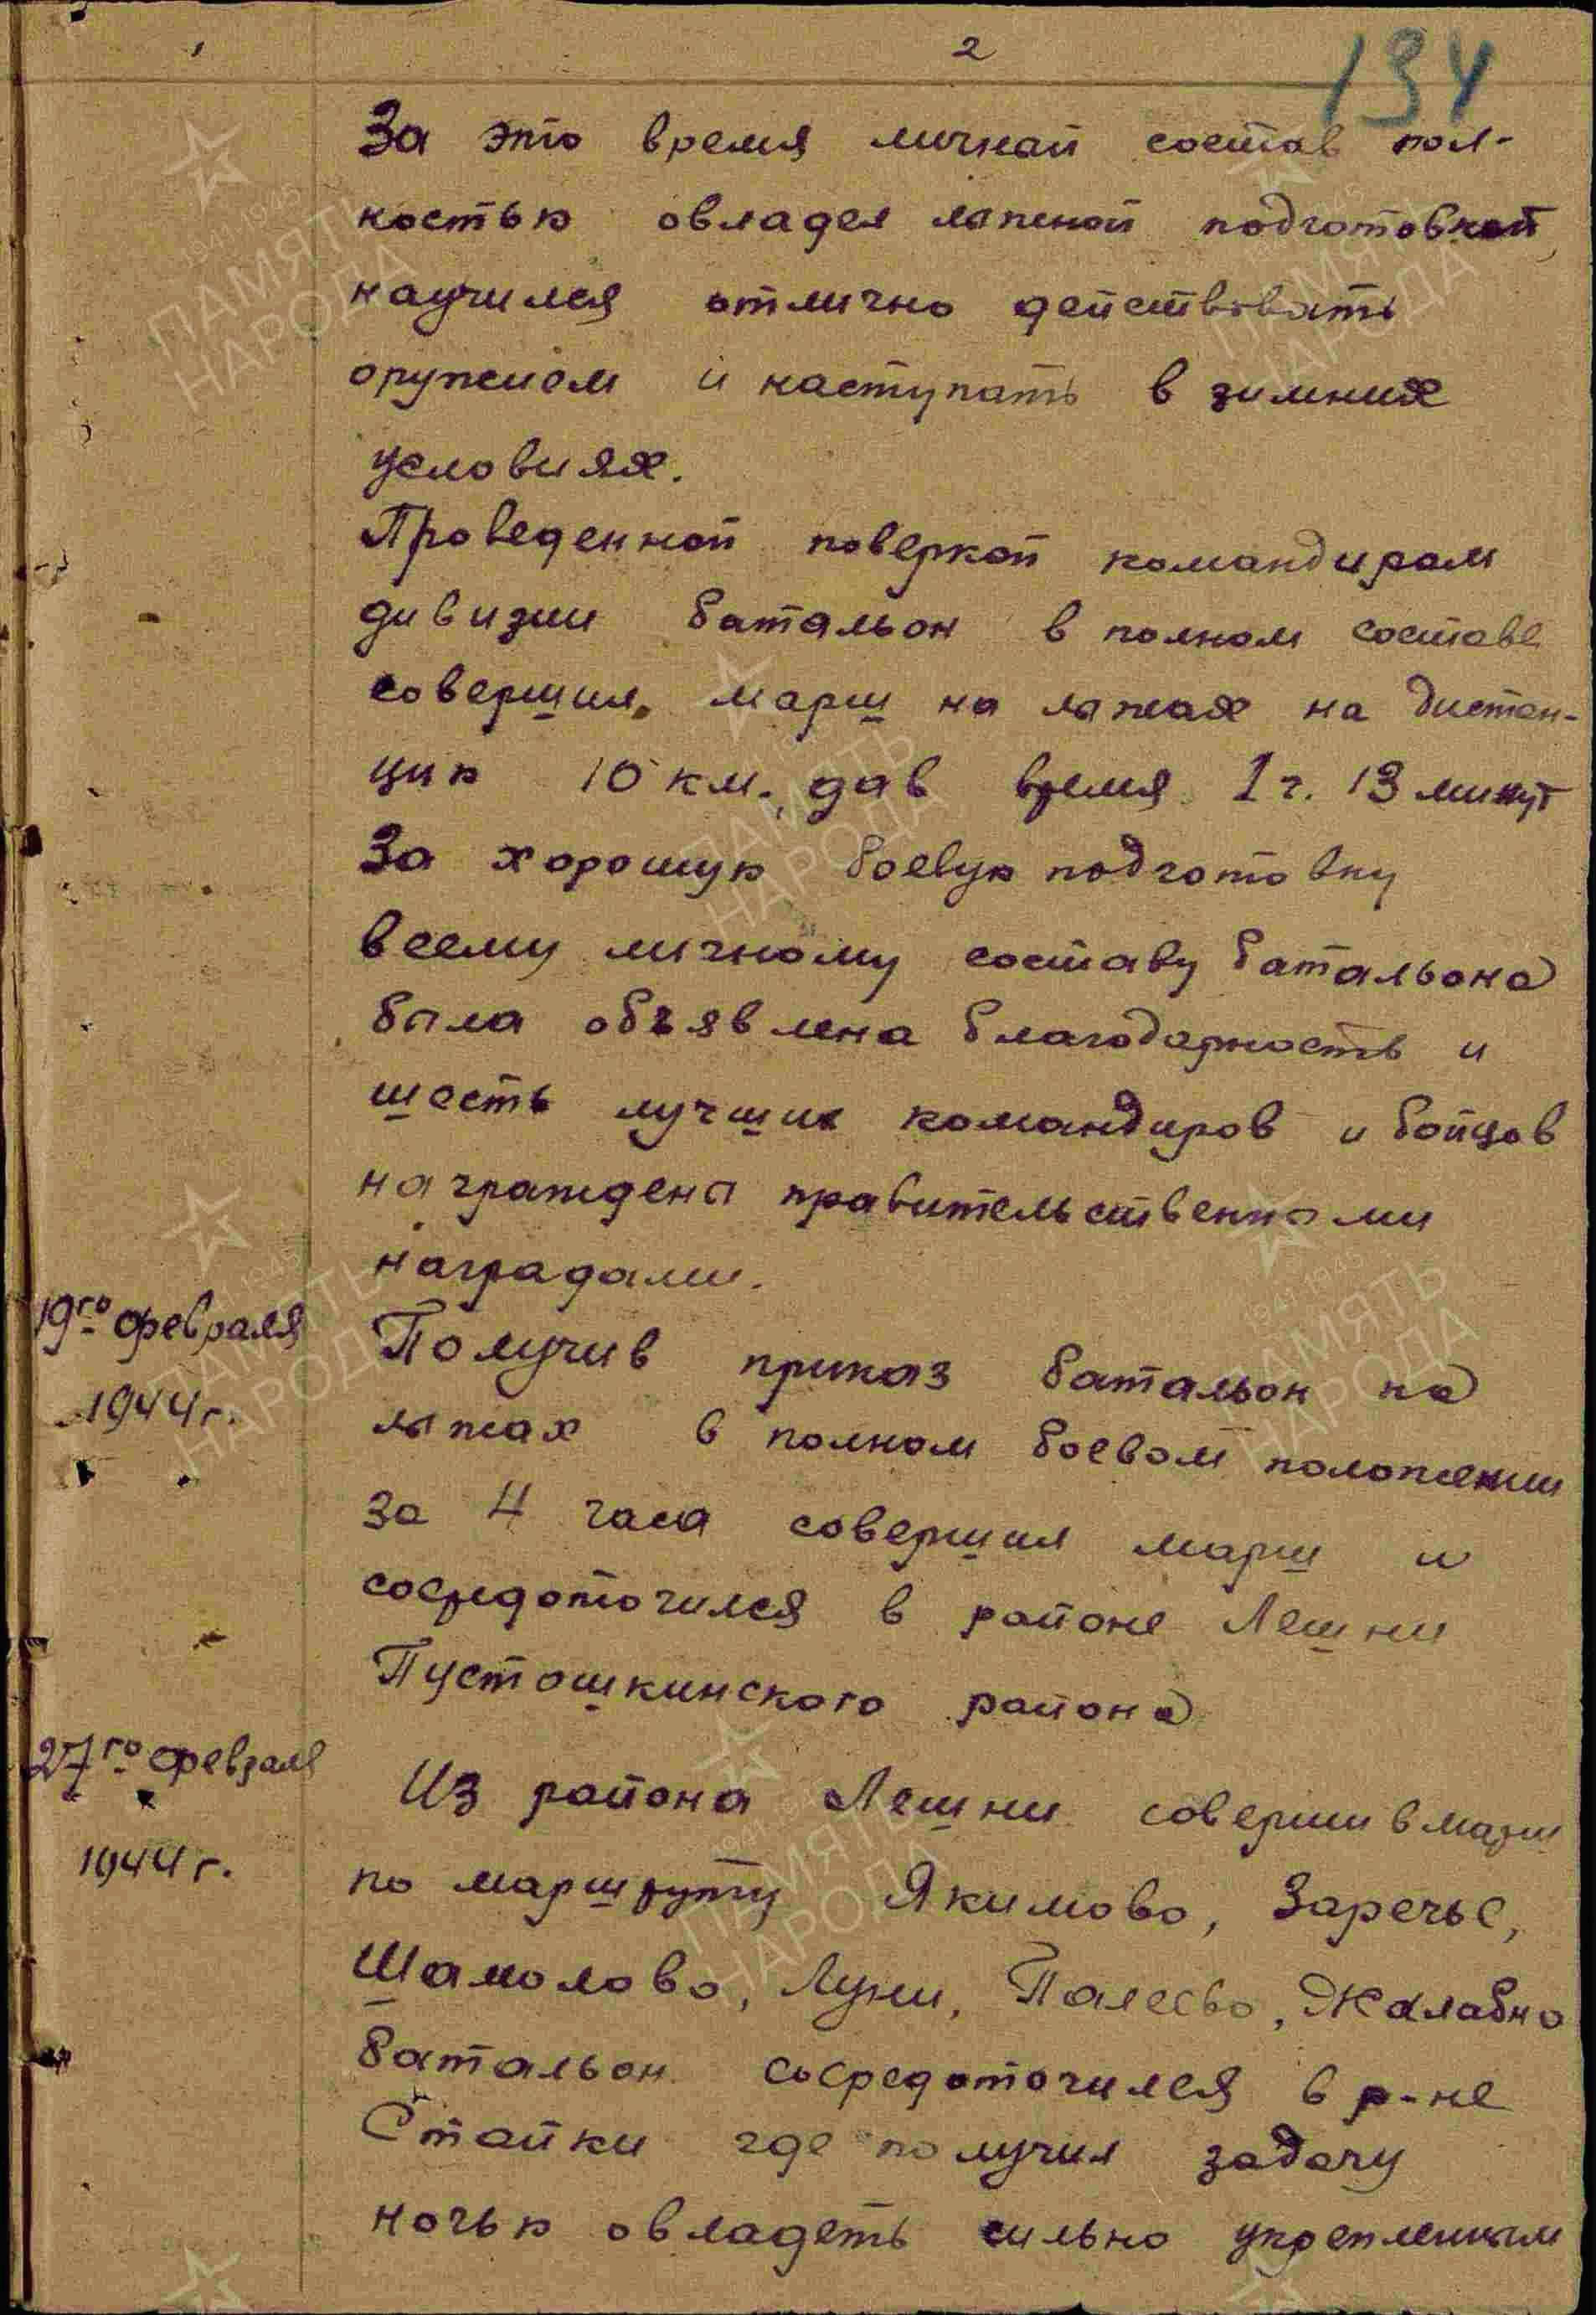 1 2 134
За это время личный состав пол-
ностью овладел лыжной подготовкой,
научился отлично действовать
оружием и наступать в зимних
условиях.
Проведенной поверкой командиром
дивизии батальон в полном составе
совершил марш на лыжах на дистан-
цию 10 км., дав время 1 ч. 13 минут
За хорошую боевую подготовку
всему личному составу батальона
была объявлена благодарность и
шесть лучших командиров и бойцов
награждены правительственными
наградами.
19го февраля
1944 г.
Получив приказ батальон на
лыжах в полном боевом положении
за 4 часа совершил марш и
сосредоточился в районе Лешни
Пустошкинского района
27го февраля
1944 г.
Из района Лешни совершив марш
по маршруту Якимово, Заречье,
Шамолово, Луни, Палеево, Жалабно
батальон сосредоточился в р-не
Стайки где получил задачу
ночью овладеть сильно укрепленным
ПАМЯТЬ
НАРОДА
1941 1945